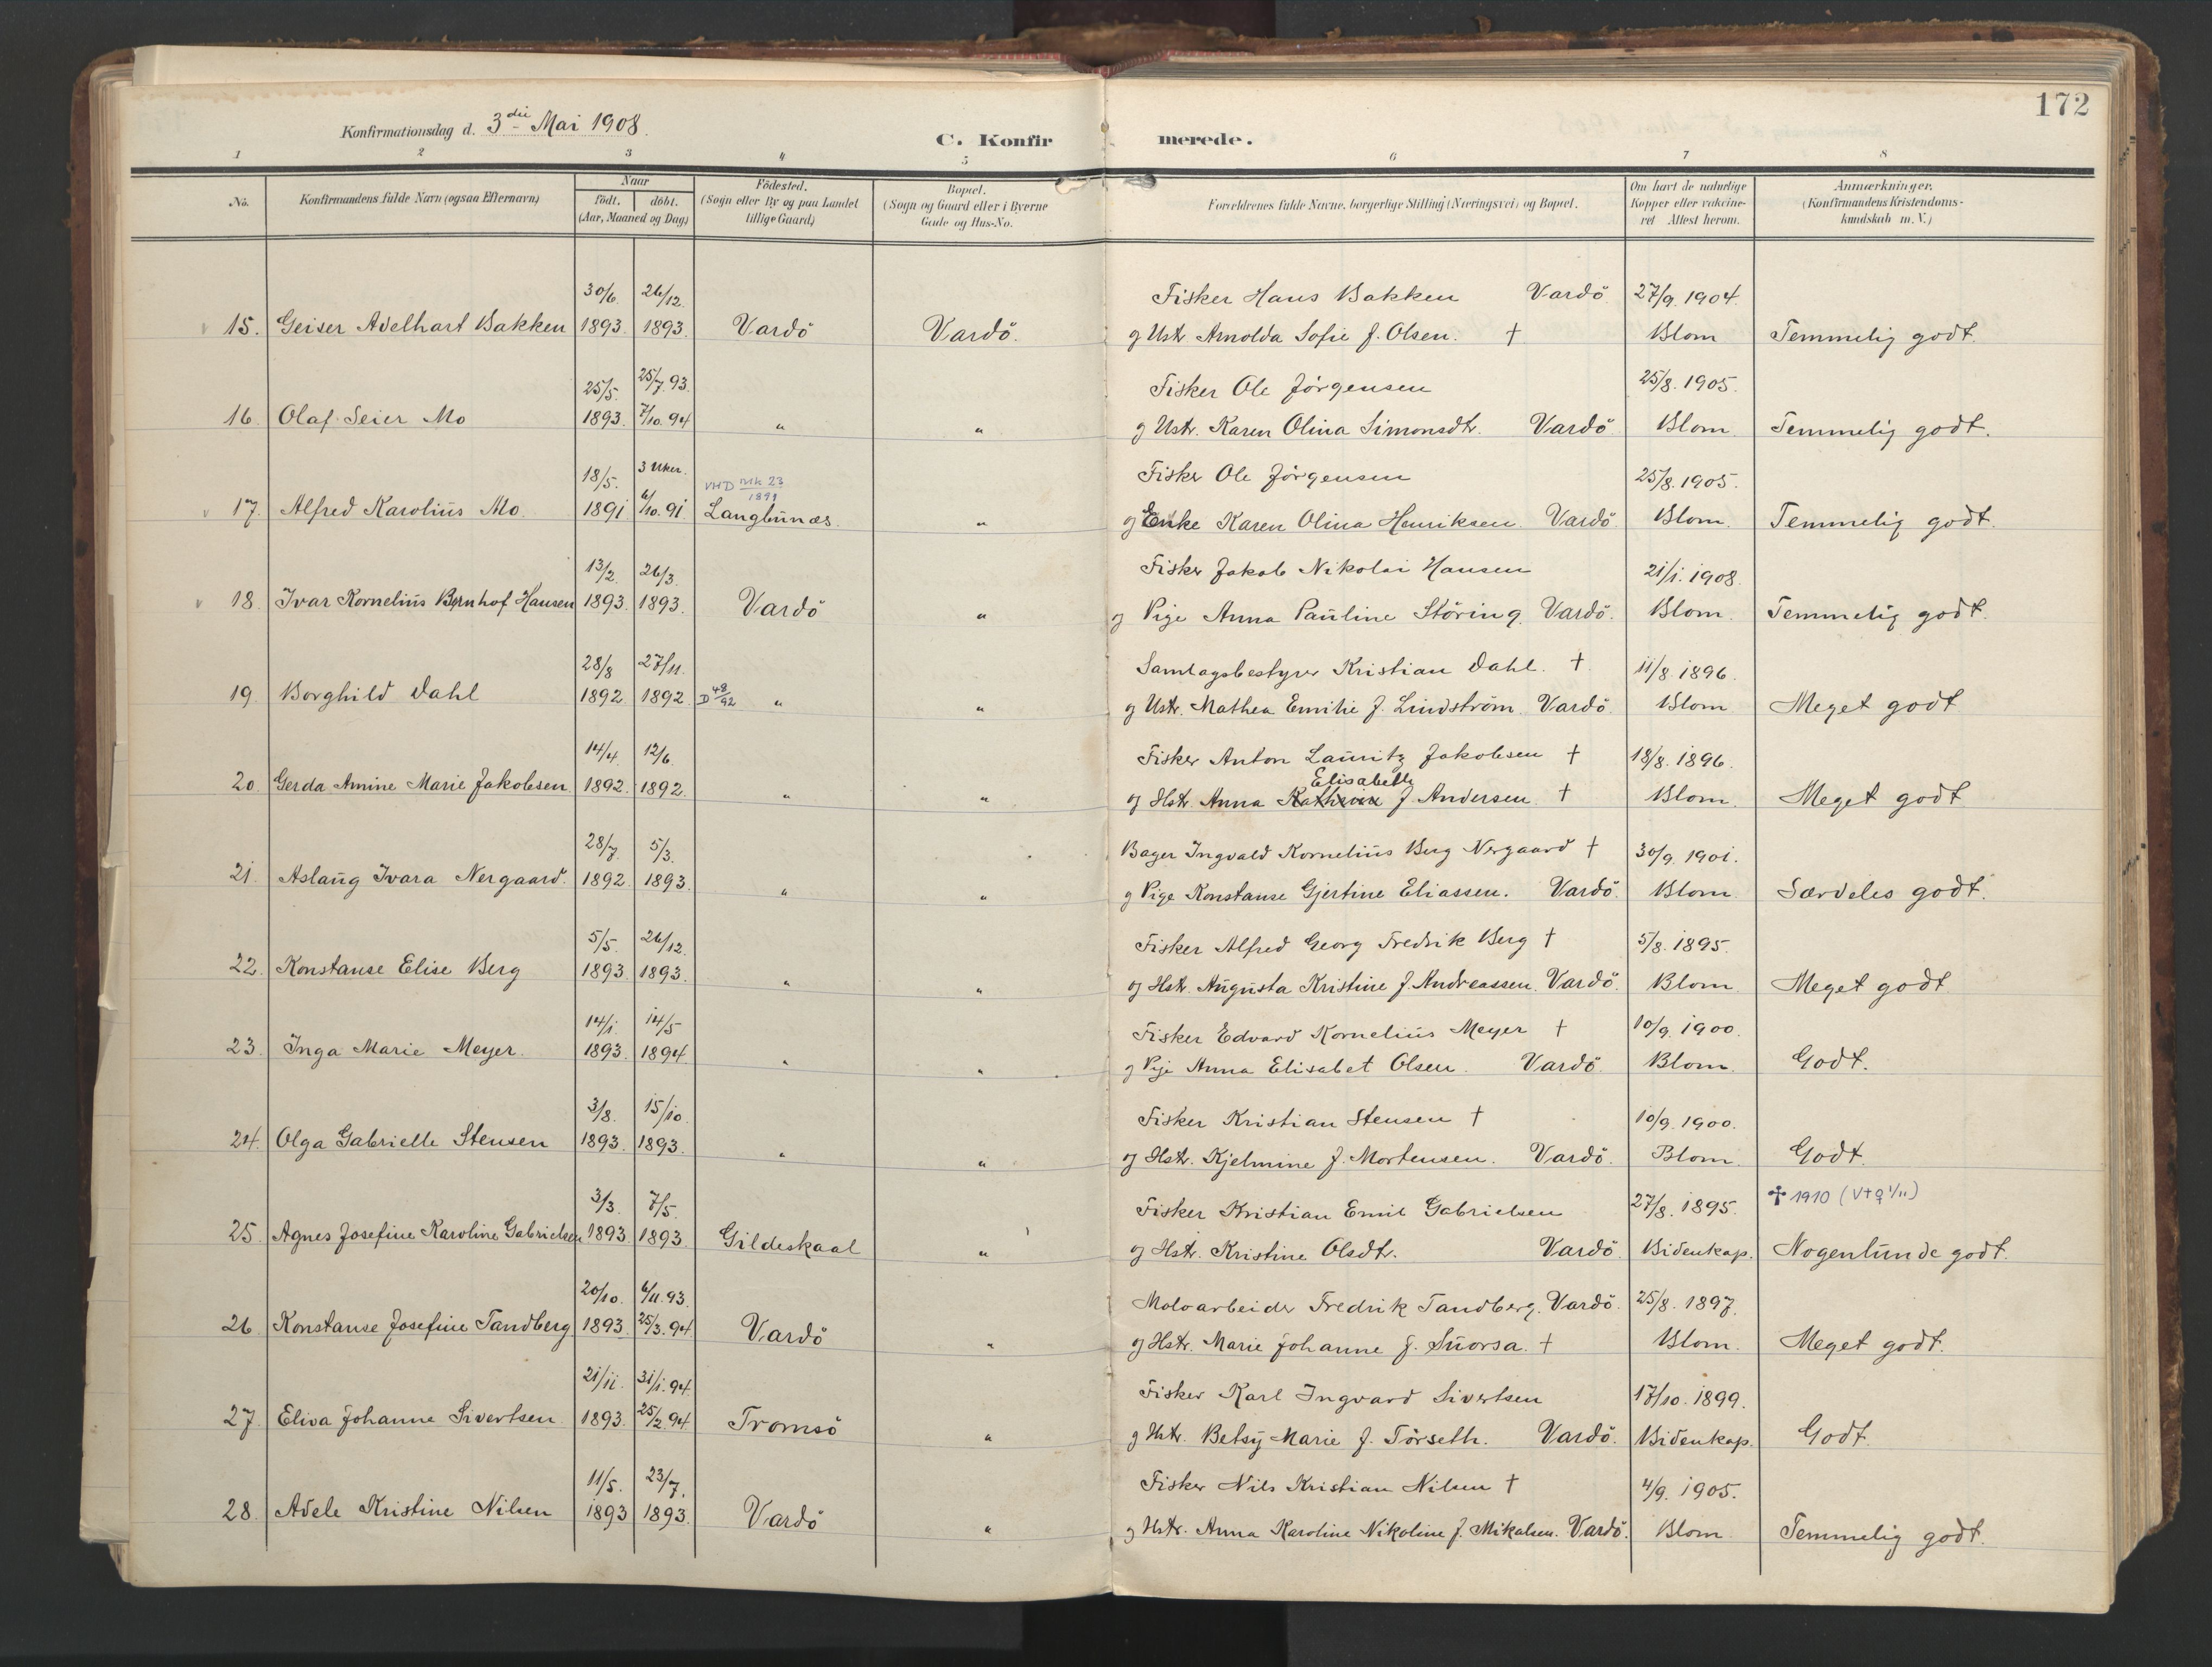 172
Konfirmationsdag d. 3die Mai 1908.
C. Konfirmerede.
1 2 3 4 5 6 7 8
No. Konfirmandens fulde Navn (ogsaa Efternavn) Naar födt. döbt. (Aar, Maaned og Dag) Födested. (Sogn eller By og paa Landet tillige Gaard) Bopæl. (Sogn og Gaard eller i Byerne Gade og Hus-No. Forældrenes fulde Navne, borgerlige Stilling (Næringsvei) og Bopæl. Om havt de naturlige Kopper eller vakcineret Attest herom. Anmærkninger. (Konfirmandens Kristendomskundskab m. V.)
30/6. 26/12. Fisker Hans Bakken Vardö 27/9. 1904.
v 15. Geiser Adelhart Bakken 1893. 1893. Vardö Vardö. og Ustr. Arnolda Sofie f. Olsen. † Blom Temmelig godt.
25/5. 25/7. 93. Fisker Ole Jörgensen 25/8. 1905.
16. Olaf Seier Mo 1893. 7/10. 94 " " og Ustr. Karen Olina Simonsdtr. Vardö Blom Temmelig godt.
18/5. 3 Uker. VHD Mk 23 1891 Fisker Ole Jörgensen 25/8. 1905.
v 17. Alfred Karolius Mo. 1891 6/10. 91 Langbunæs. " og Enke Karen Olina Henriksen. Vardö Blom. Temmelig godt.
13/2. 26/3. Fisker Jakob Nikolai Hansen 21/1. 1908.
v 18. Ivar Kornelius Bernhof Hansen 1893. 1893. Vardö " og Pige Anna Pauline Störing. Vardö. Blom. Temmelig godt.
28/8 27/11. Samlagsbestyrer Kristian Dahl. † 11/8 1896.
19. Borghild Dahl 1892 1892 D 48/92 " " og Ustr. Mathea Emilie f. Lindström. Vardö Blom Meget godt
14/4. 12/6. Fisker Anton Lauritz Jakobsen † 18/8. 1896.
Elisabeth
20. Gerda Amine Marie Jakobsen. 1892. 1892. " " og Hstr. Anna f. Andersen. † Blom. Meget godt
28/7. 5/3. Bager Ingvald Kornelius Berg Nergaard † 30/9. 1901.
21. Aslaug Ivara Nergaard. 1892. 1893. " " og Pige Konstanse Gjertine Eliassen. Vardö. Blom Særdeles godt.
5/5. 26/12. Fisker Alfred Georg Fredrik Berg † 5/8. 1895.
22. Konstanse Elise Berg 1893. 1893. " " og Hstr. Augusta Kristine f. Andreassen. Vardö. Blom. Meget godt
14/1. 14/5 Fisker Edvard Kornelius Meyer † 10/9. 1900.
23. Inga Marie Meyer. 1893. 1894. " " og Pige Anna Elisabet Olsen. Vardö. Blom. Godt.
3/8. 15/10. Fisker Kristian Stensen † 10/9. 1900.
24. Olga Gabrielle Stensen 1893. 1893. " " og Hstr. Kjelmine f. Mortensen. Vardö. Blom. Godt.
3/3. 7/5. Fisker Kristian Emil Gabrielsen 27/8. 1895. † 1910 (V+♀ 1/11)
25. Agnes Josefine Karoline Gabrielsen 1893. 1893. Gildeskaal " og Hstr. Kristine Olsdtr. Vardö. Bidenkap. Nogenlunde godt.
20/10. 6/11. 93. Moloarbeider Fredrik Tandberg. Vardö. 25/8. 1897.
26. Konstanse Josefine Tandberg 1893. 25/3. 94 Vardö " og Hstr. Marie Johanne f. Suorsa. † Blom. Meget godt.
21/11. 31/1. 94. Fisker Karl Ingvard Sivertsen 17/10. 1899.
27. Eliva Johanne Sivertsen. 1893. 25/2. 94 Tromsö " og Hstr. Betsy Marie f. Törseth. Vardö. Bidenkap. Godt.
11/5. 23/7. Fisker Nils Kristian Nilsen † 4/9. 1905.
28. Adele Kristine Nilsen 1893 1893. Vardö " og Hstr. Anna Karoline Nikoline f. Mikalsen. Vardö. Blom. Temmelig godt.